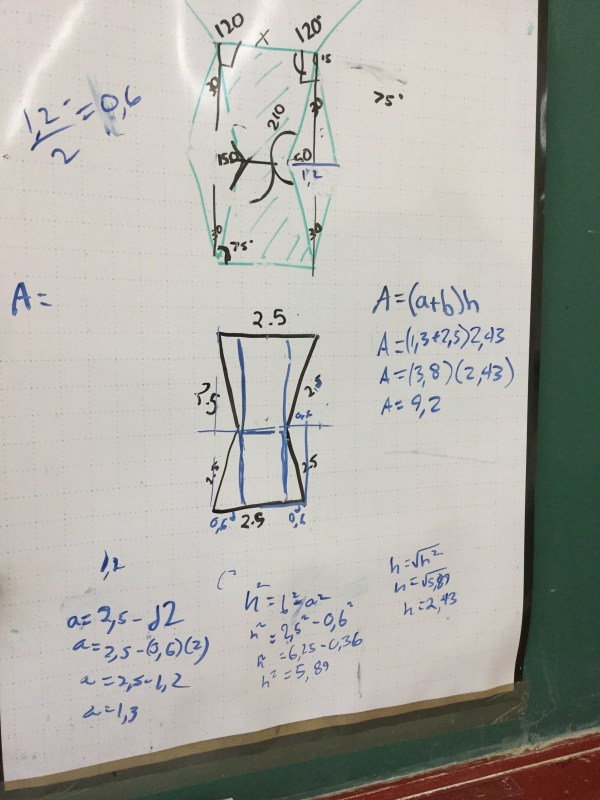 120 x 120°
15
30 30
75°
1,2 = 0,6
2
210
150 50
1,2
30 75° 30
A=
2.5
2.5
0,6
2.5 2.5
0,6 2.5 0,6
A=(a+b)h
A=(1,3+2,5)2,43
A=(3,8)(2,43)
A=9,2
1,2
a=2,5-d2
a=2,5-(0,6)(2)
a=2,5-1,2
a=1,3
h²=b²-a²
h²=2,5²-0,6²
h²=6,25-0,36
h²=5,89
h=√h²
h=√5,89
h=2,43